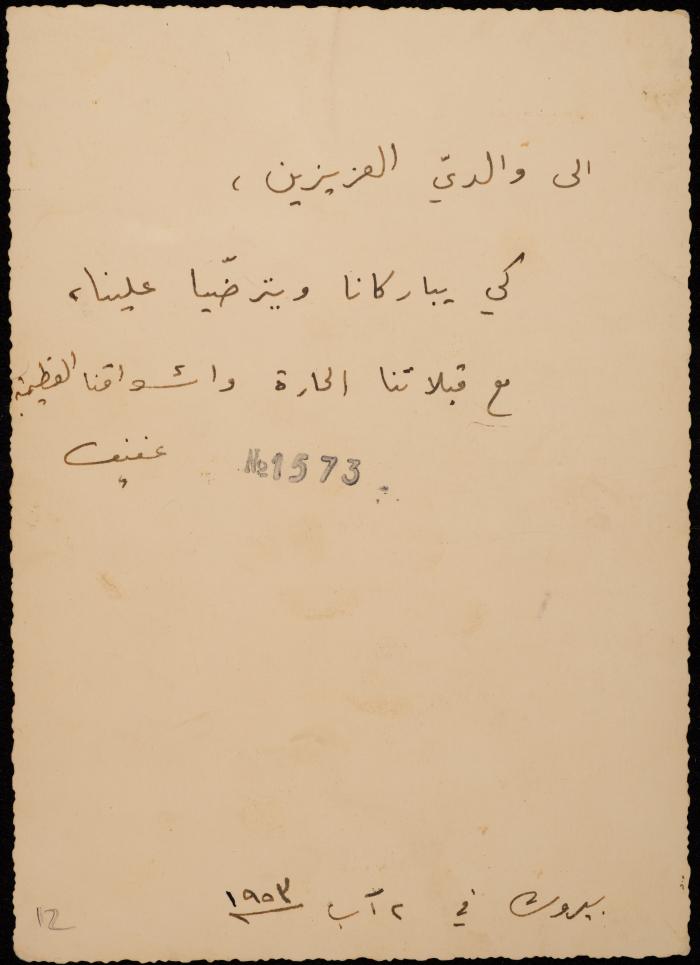 الى والديّ العزيزين ،
كي يباركانا ويترضّيا علينا ،
مع قبلاتنا الحارة واشواقنا العظيمة
عفيف
№ 1573
بيروت في ٢ آب ١٩٥٣
12